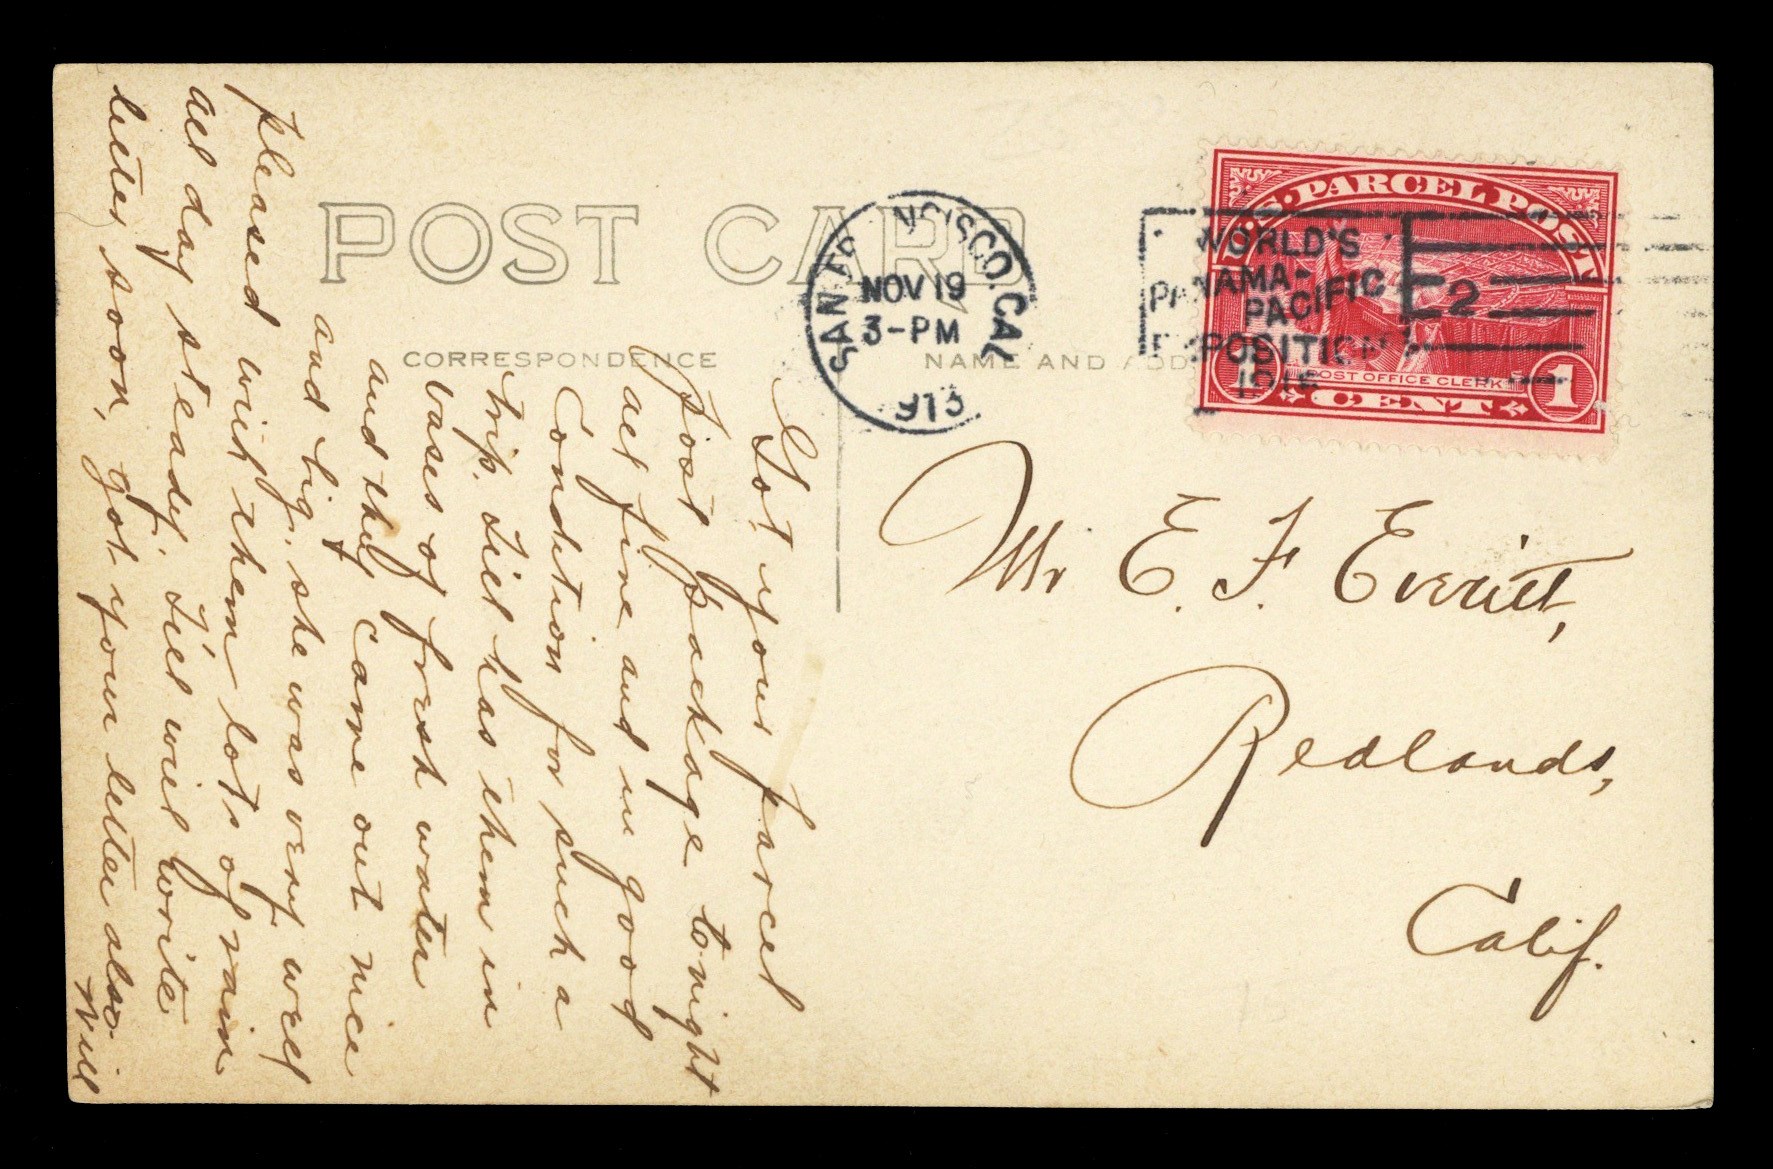 POST CARD
CORRESPONDENCE
NAME AND ADD
SAN FR NCISCO. CAL
NOV 19
3-PM
913
WORLD'S
PANAMA-
PACIFIC
EXPOSITION
1915
E 2
U.S. PARCEL POST
POST OFFICE CLERK
1 CENT 1
Got your parcel
post package tonight
all fine and in good
Condition for such a
trip. Till has them in
vases of fresh water
and they came out nice
and big. she was very well
pleased with them lots of rain
all day steady. Till will write
letter soon, got your letter also.
Will
Mr E. F. Everitt,
Redlands,
Calif.